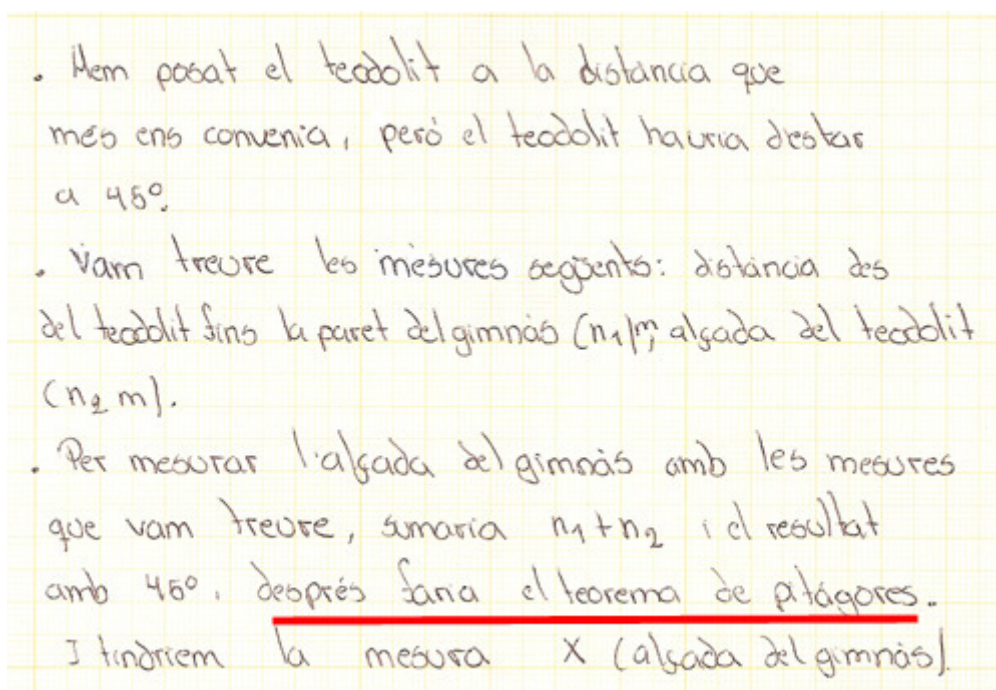 . Hem posat el teodolit a la distància que
més ens convenia, però el teodolit hauria d'estar
a 45º.
. Vam treure les mesures següents: distància des
del teodolit fins la paret del gimnàs (n1)m, alçada del teodolit
(n2 m).
. Per mesurar l'alçada del gimnàs amb les mesures
que vam treure, sumaria n1 + n2 i el resultat
amb 45º. després faria el teorema de pitàgores.
I tindriem la mesura X (alçada del gimnàs).